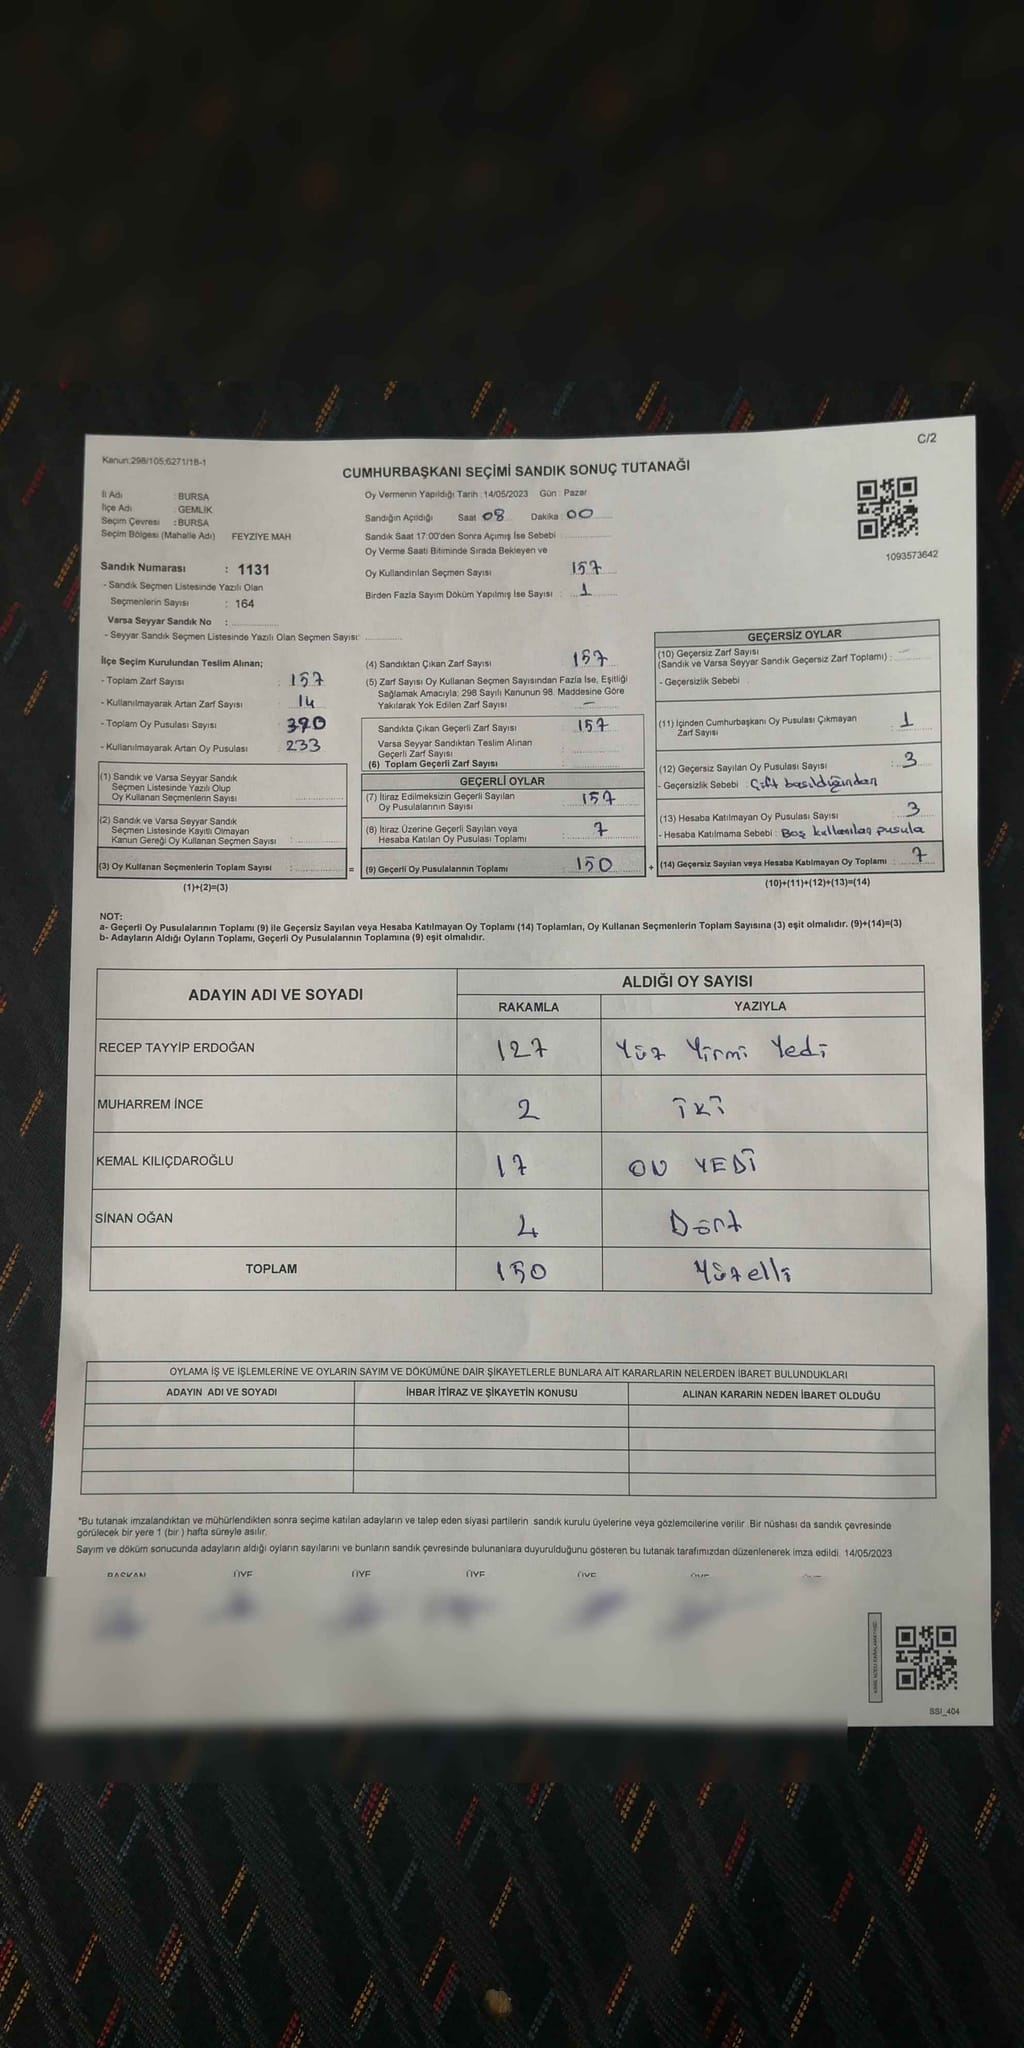 C/2
Kanun:298/105;6271/18-1
CUMHURBAŞKANI SEÇİMİ SANDIK SONUÇ TUTANAĞI
İl Adı : BURSA
İlçe Adı : GEMLİK
Seçim Çevresi : BURSA
Seçim Bölgesi (Mahalle Adı) FEYZIYE MAH
Sandık Numarası : 1131
- Sandık Seçmen Listesinde Yazılı Olan
Seçmenlerin Sayısı : 164
Varsa Seyyar Sandık No :
- Seyyar Sandık Seçmen Listesinde Yazılı Olan Seçmen Sayısı:
Oy Vermenin Yapıldığı Tarih : 14/05/2023 Gün : Pazar
Sandığın Açıldığı Saat 08 Dakika 00
Sandık Saat 17:00'den Sonra Açımış İse Sebebi
Oy Verme Saati Bitiminde Sırada Bekleyen ve
Oy Kullandırılan Seçmen Sayısı 157
Birden Fazla Sayım Döküm Yapılmış İse Sayısı : 1
1093573642
İlçe Seçim Kurulundan Teslim Alınan;
- Toplam Zarf Sayısı : 157
- Kullanılmayarak Artan Zarf Sayısı : 14
- Toplam Oy Pusulası Sayısı : 390
- Kullanılmayarak Artan Oy Pusulası : 233
(1) Sandık ve Varsa Seyyar Sandık
Seçmen Listesinde Yazılı Olup
Oy Kullanan Seçmenlerin Sayısı :
(2) Sandık ve Varsa Seyyar Sandık
Seçmen Listesinde Kayıtlı Olmayan
Kanun Gereği Oy Kullanan Seçmen Sayısı :
(3) Oy Kullanan Seçmenlerin Toplam Sayısı :
(1)+(2)=(3)
(4) Sandıktan Çıkan Zarf Sayısı : 157
(5) Zarf Sayısı Oy Kullanan Seçmen Sayısından Fazla İse, Eşitliği
Sağlamak Amacıyla; 298 Sayılı Kanunun 98. Maddesine Göre
Yakılarak Yok Edilen Zarf Sayısı : -
Sandıkta Çıkan Geçerli Zarf Sayısı : 157
Varsa Seyyar Sandıktan Teslim Alınan
Geçerli Zarf Sayısı
(6) Toplam Geçerli Zarf Sayısı
=
GEÇERLİ OYLAR
(7) İtiraz Edilmeksizin Geçerli Sayılan
Oy Pusulalarının Sayısı : 157
(8) İtiraz Üzerine Geçerli Sayılan veya
Hesaba Katılan Oy Pusulası Toplamı : 7
(9) Geçerli Oy Pusulalarının Toplamı : 150
+
GEÇERSİZ OYLAR
(10) Geçersiz Zarf Sayısı
(Sandık ve Varsa Seyyar Sandık Geçersiz Zarf Toplamı) : -
- Geçersizlik Sebebi :
(11) İçinden Cumhurbaşkanı Oy Pusulası Çıkmayan
Zarf Sayısı : 1
(12) Geçersiz Sayılan Oy Pusulası Sayısı : 3
- Geçersizlik Sebebi : Çift basıldığından
(13) Hesaba Katılmayan Oy Pusulası Sayısı : 3
- Hesaba Katılmama Sebebi : Boş kullanılan pusula
(14) Geçersiz Sayılan veya Hesaba Katılmayan Oy Toplamı : 7
(10)+(11)+(12)+(13)=(14)
NOT:
a- Geçerli Oy Pusulalarının Toplamı (9) ile Geçersiz Sayılan veya Hesaba Katılmayan Oy Toplamı (14) Toplamları, Oy Kullanan Seçmenlerin Toplam Sayısına (3) eşit olmalıdır. (9)+(14)=(3)
b- Adayların Aldığı Oyların Toplamı, Geçerli Oy Pusulalarının Toplamına (9) eşit olmalıdır.
ADAYIN ADI VE SOYADI ALDIĞI OY SAYISI
RAKAMLA YAZIYLA
RECEP TAYYİP ERDOĞAN 127 Yüz Yirmi Yedi
MUHARREM İNCE 2 İKİ
KEMAL KILIÇDAROĞLU 17 ON YEDİ
SİNAN OĞAN 4 Dört
TOPLAM 150 Yüzelli
OYLAMA İŞ VE İŞLEMLERİNE VE OYLARIN SAYIM VE DÖKÜMÜNE DAİR ŞİKAYETLERLE BUNLARA AİT KARARLARIN NELERDEN İBARET BULUNDUKLARI
ADAYIN ADI VE SOYADI İHBAR İTİRAZ VE ŞİKAYETİN KONUSU ALINAN KARARIN NEDEN İBARET OLDUĞU
*Bu tutanak imzalandıktan ve mühürlendikten sonra seçime katılan adayların ve talep eden siyasi partilerin sandık kurulu üyelerine veya gözlemcilerine verilir. Bir nüshası da sandık çevresinde
görülecek bir yere 1 (bir ) hafta süreyle asılır.
Sayım ve döküm sonucunda adayların aldığı oyların sayılarını ve bunların sandık çevresinde bulunanlara duyurulduğunu gösteren bu tutanak tarafımızdan düzenlenerek imza edildi. 14/05/2023
BAŞKAN ÜYE ÜYE ÜYE ÜYE ÜYE
SSI_404